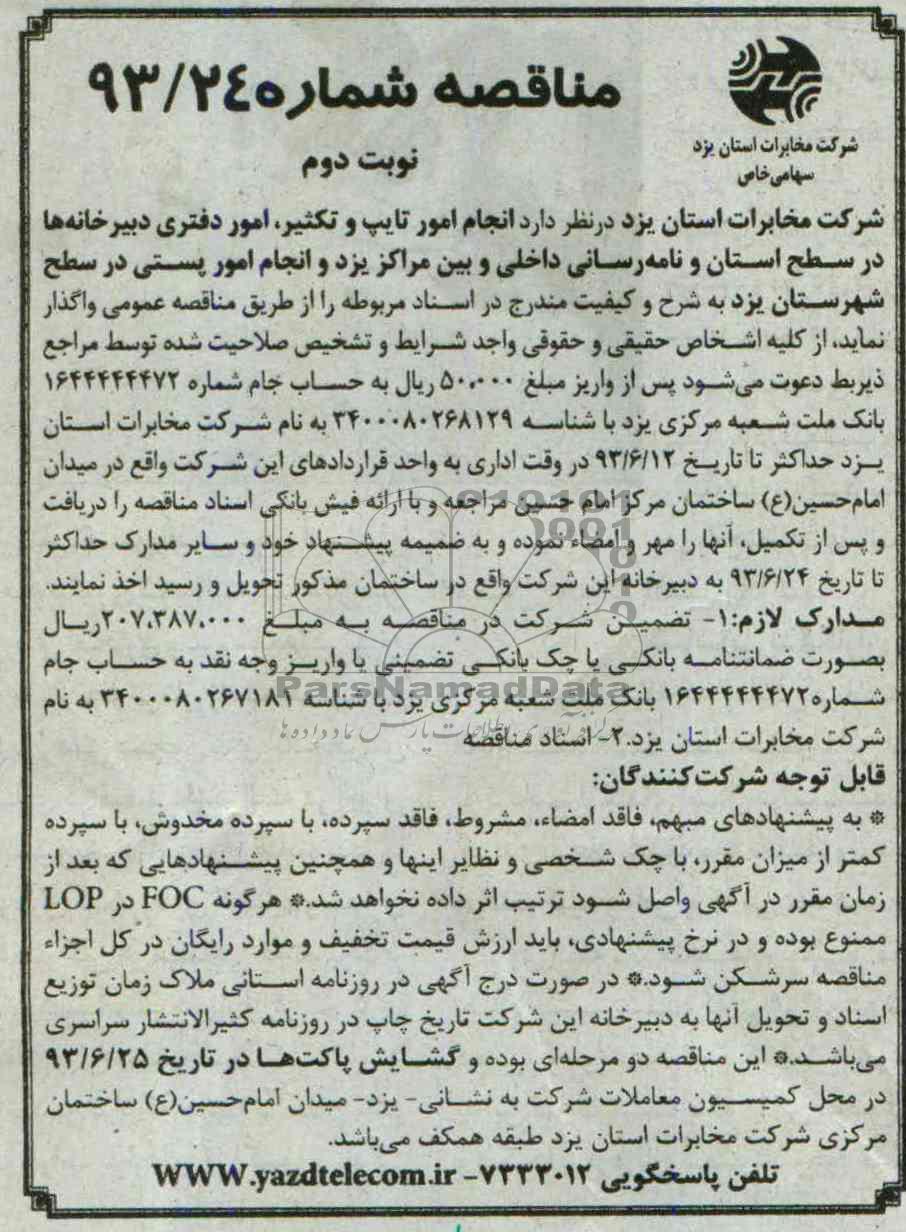 مناقصه شماره ۹۳/۲۴
شرکت مخابرات استان یزد
سهامی خاص
نوبت دوم
شرکت مخابرات استان یزد درنظر دارد انجام امور تایپ و تکثیر، امور دفتری دبیرخانه‌ها
در سطح استان و نامه‌رسانی داخلی و بین مراکز یزد و انجام امور پستی در سطح
شهرستان یزد به شرح و کیفیت مندرج در اسناد مربوطه را از طریق مناقصه عمومی واگذار
نماید، از کلیه اشخاص حقیقی و حقوقی واجد شرایط و تشخیص صلاحیت شده توسط مراجع
ذیربط دعوت می‌شود پس از واریز مبلغ ۵۰,۰۰۰ ریال به حساب جام شماره ۱۶۴۴۴۴۴۴۷۲
بانک ملت شعبه مرکزی یزد با شناسه ۳۴۰۰۰۸۰۲۶۸۱۲۹ به نام شرکت مخابرات استان
یزد حداکثر تا تاریخ ۹۳/۶/۱۲ در وقت اداری به واحد قراردادهای این شرکت واقع در میدان
امام‌حسین(ع) ساختمان مرکز امام حسین مراجعه و با ارائه فیش بانکی اسناد مناقصه را دریافت
و پس از تکمیل، آنها را مهر و امضاء نموده و به ضمیمه پیشنهاد خود و سایر مدارک حداکثر
تا تاریخ ۹۳/۶/۲۴ به دبیرخانه این شرکت واقع در ساختمان مذکور تحویل و رسید اخذ نمایند.
مدارک لازم:۱- تضمین شرکت در مناقصه به مبلغ ۲۰۷,۳۸۷,۰۰۰ریال
بصورت ضمانتنامه بانکی یا چک بانکی تضمینی یا واریز وجه نقد به حساب جام
شماره۱۶۴۴۴۴۴۴۷۲ بانک ملت شعبه مرکزی یزد با شناسه ۳۴۰۰۰۸۰۲۶۷۱۸۱ به نام
ParsNamadData
شرکت مخابرات استان یزد.۲- اسناد مناقصه
قابل توجه شرکت‌کنندگان:
* به پیشنهادهای مبهم، فاقد امضاء، مشروط، فاقد سپرده، با سپرده مخدوش، با سپرده
کمتر از میزان مقرر، با چک شخصی و نظایر اینها و همچنین پیشنهادهایی که بعد از
زمان مقرر در آگهی واصل شود ترتیب اثر داده نخواهد شد.* هرگونه FOC در LOP
ممنوع بوده و در نرخ پیشنهادی، باید ارزش قیمت تخفیف و موارد رایگان در کل اجزاء
مناقصه سرشکن شود.* در صورت درج آگهی در روزنامه استانی ملاک زمان توزیع
اسناد و تحویل آنها به دبیرخانه این شرکت تاریخ چاپ در روزنامه کثیرالانتشار سراسری
می‌باشد.* این مناقصه دو مرحله‌ای بوده و گشایش پاکت‌ها در تاریخ ۹۳/۶/۲۵
در محل کمیسیون معاملات شرکت به نشانی- یزد- میدان امام‌حسین(ع) ساختمان
مرکزی شرکت مخابرات استان یزد طبقه همکف می‌باشد.
تلفن پاسخگویی ۷۳۳۳۰۱۲- WWW.yazdtelecom.ir